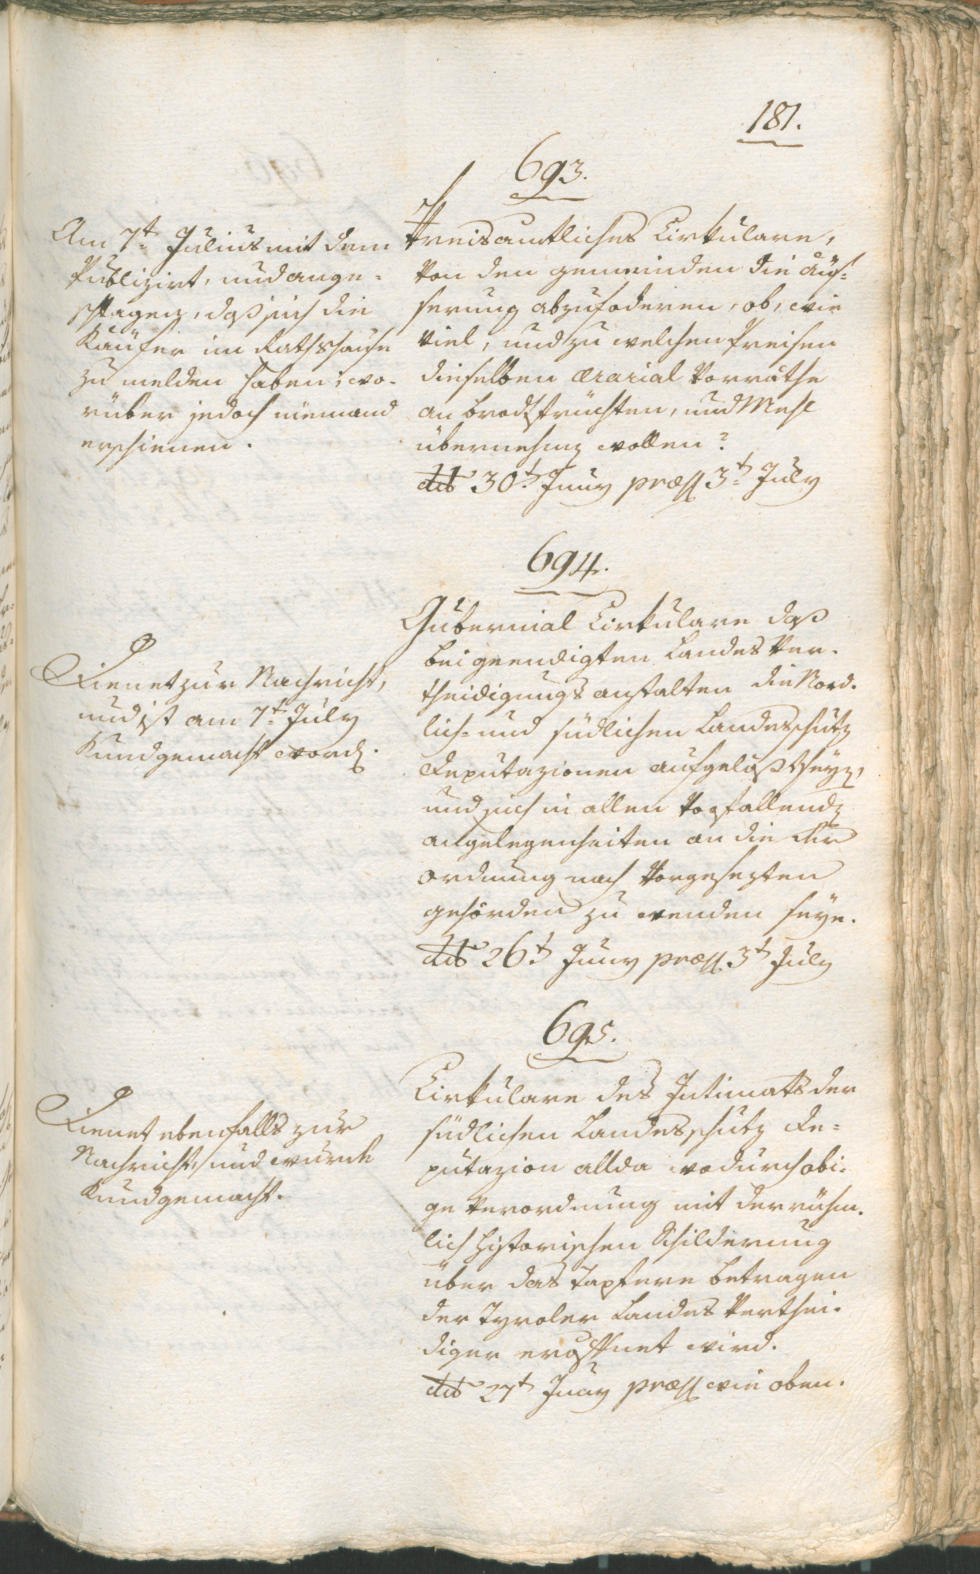 181.
693.
Am 7t. Julius mit dem
Publizirt, und ange-
schlagen, daß sich die
Käufer im Rathshause
zu melden haben; wo-
rüber jedoch niemand
erschienen.
Kreisamtliches Cirkulare,
von den gemeinden die Äuß-
serung abzufoderen, ob, wie
viel, und zu welchen Preisen
dieselben ærarial Vorräthe
an brodfrüchten, und Mehl
übernehmen wollen?
ddo 30t. Juny præs 3t. July
694.
Dienet zur Nachricht,
und ist am 7t. July
Kundgemacht worden.
Gubernial Cirkulare daß
bei geendigten Landes Ver-
theidigungs anstalten die Nord-
lich- und südlichen Landesschutz
Deputazionen aufgelößt seyen,
und sich in allen vorfallenden
angelegenheiten an die der
ordnung nach Vorgesezten
gehörden zu wenden seye.
ddo 26t. Juny præs. 3t July
695.
Dienet ebenfalls zur
Nachricht, und wurde
Kundgemacht.
Cirkulare des Intimats der
südlichen Landesschutz De-
putazion allda wodurch obi-
ge Verordnung mit der rühm-
lich historischen Schilderung
über das tapfere betragen
der Tyroler Landes Verthei-
diger eröffnet wird.
ddo 27t Juny præs wie oben.